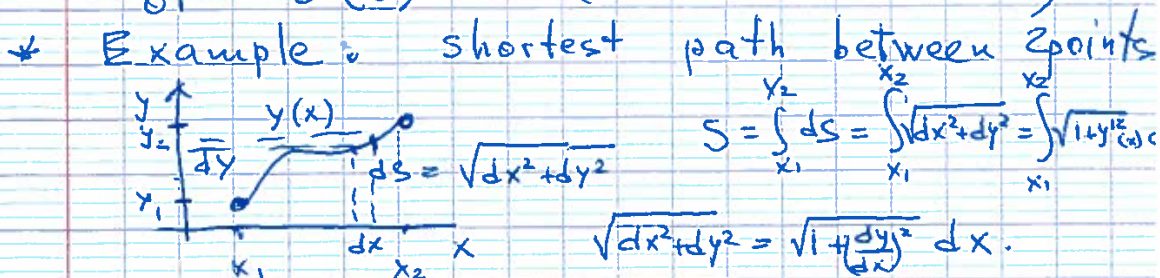 * Example: shortest path between 2points
y y₂ y(x) dy y₁ x₁ dx x₂ x
dS = √(dx²+dy²)
S = ∫_{x₁}^{x₂} dS = ∫_{x₁}^{x₂} √(dx²+dy²) = ∫_{x₁}^{x₂} √(1+y'²(x))
√(dx²+dy²) = √(1+(dy/dx)²) dx.